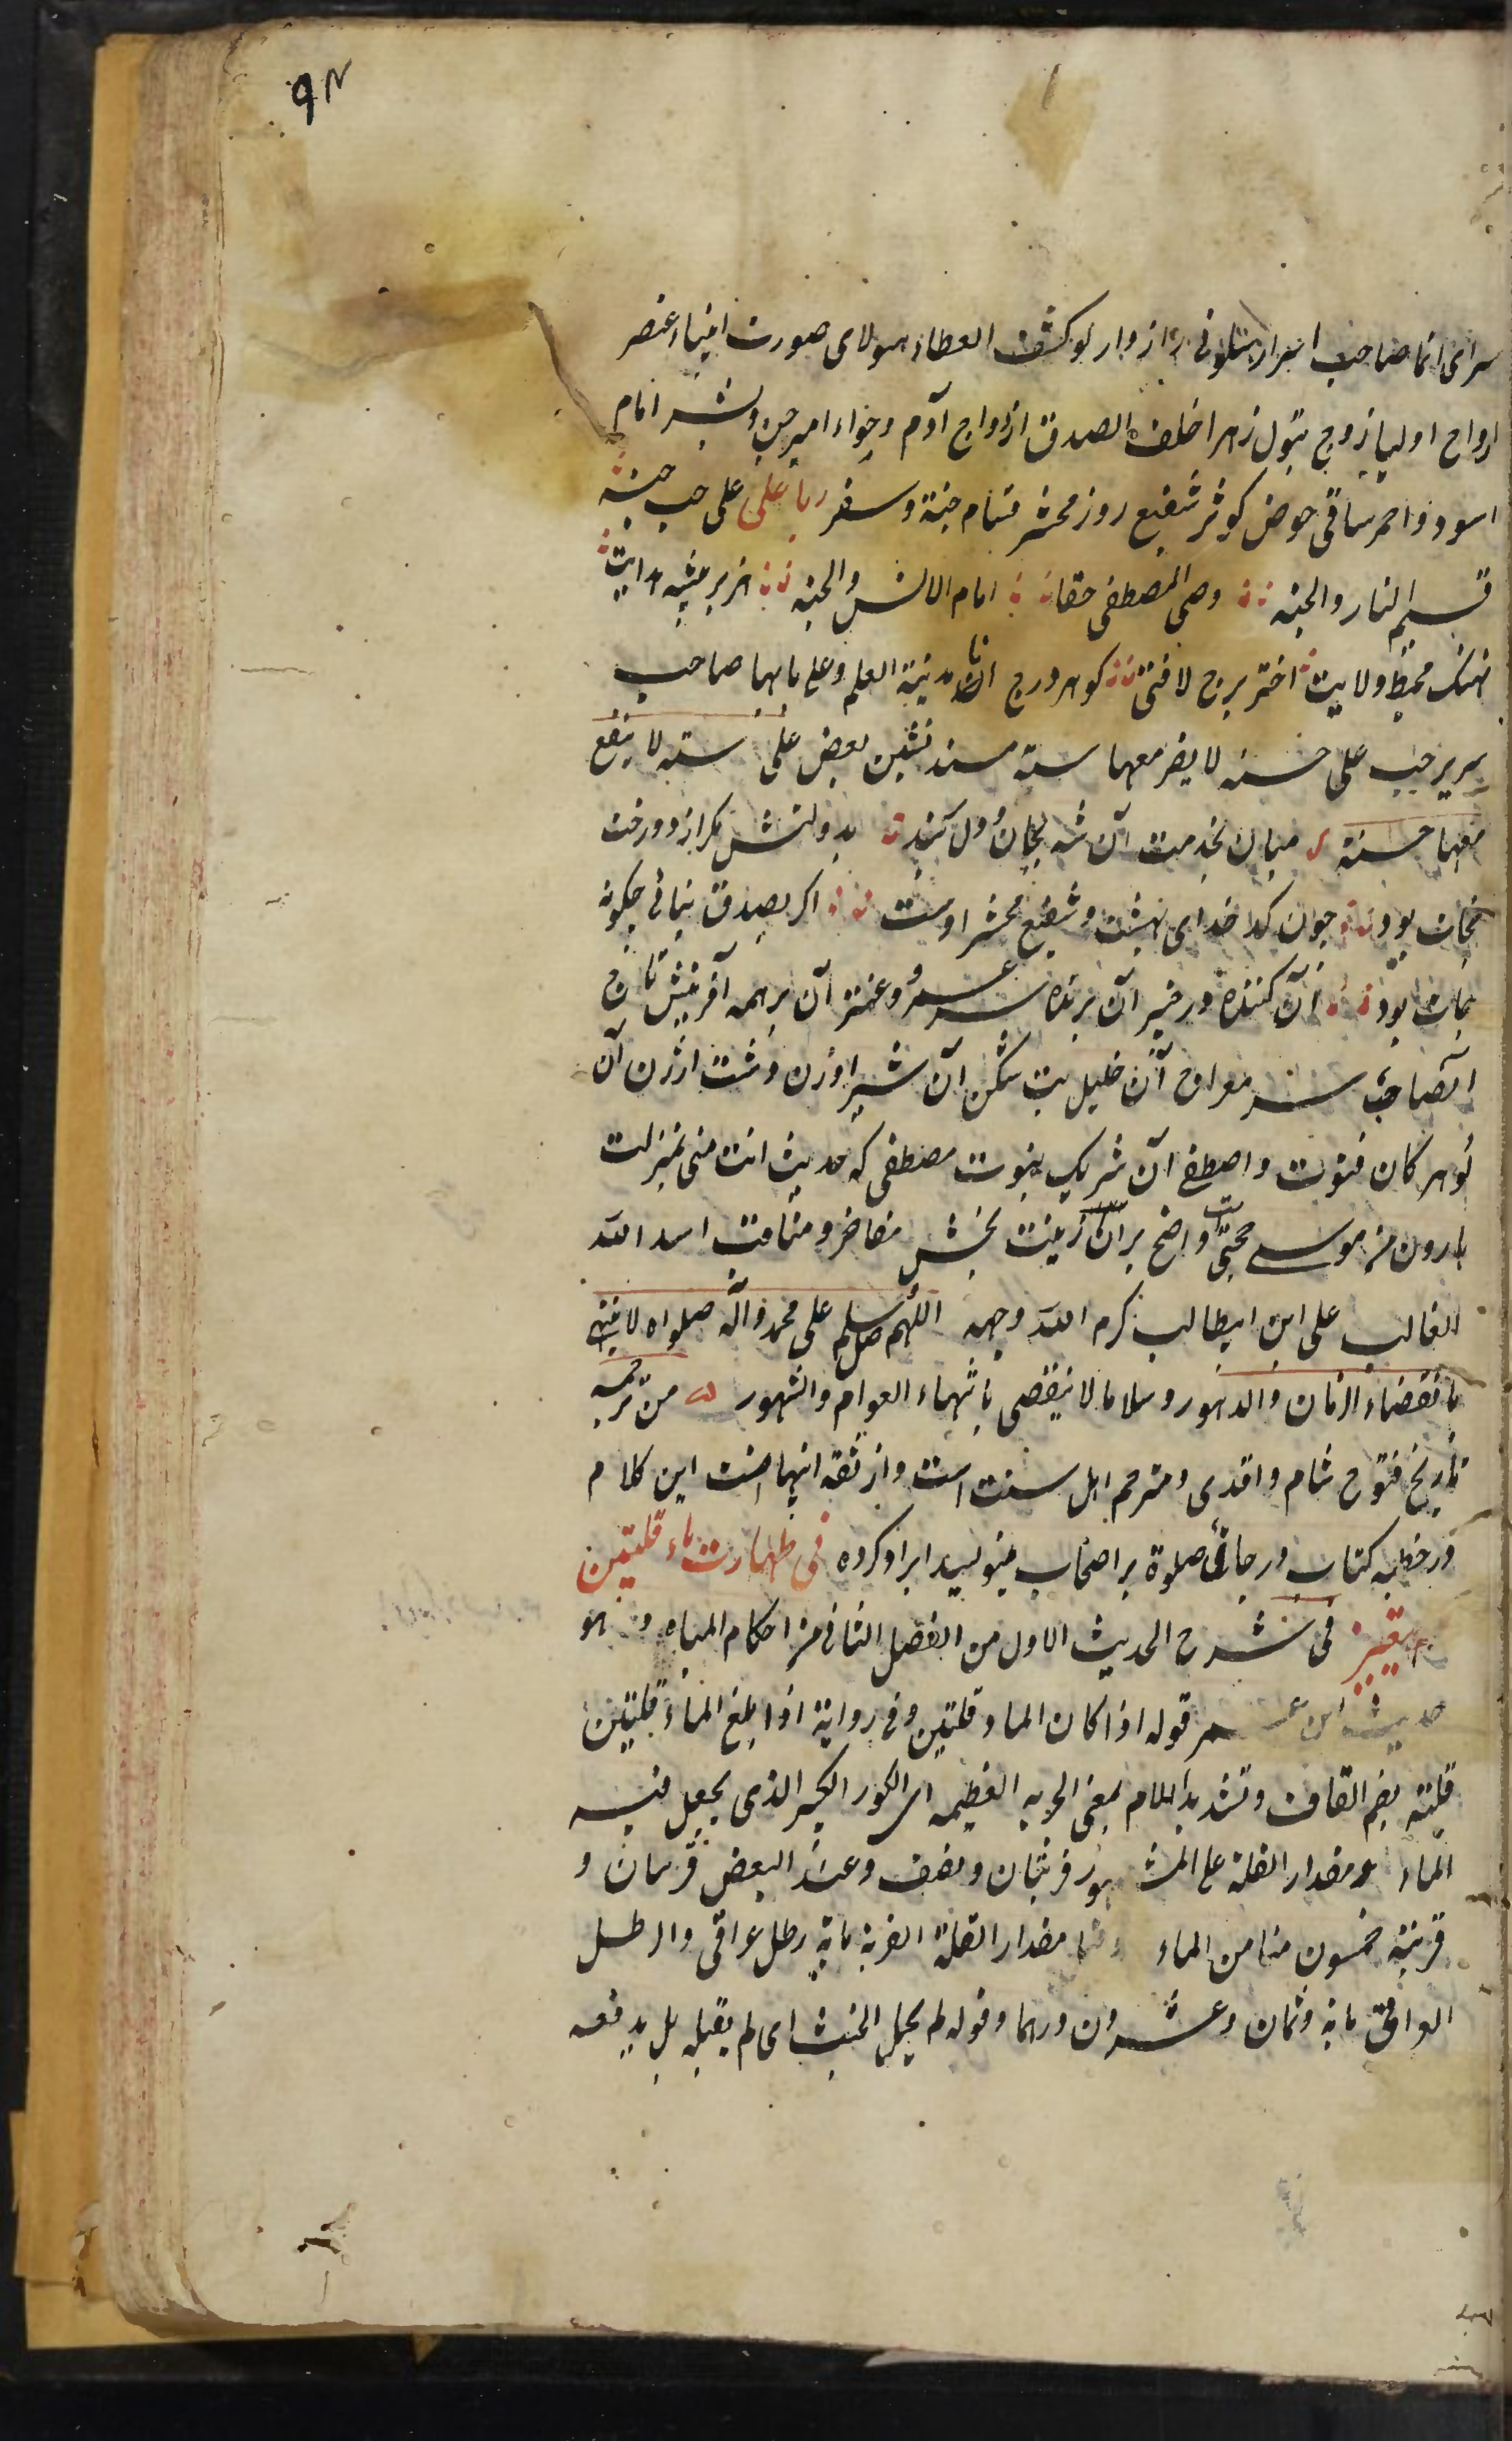 ۹۴
سرای انما صاحب اسرار سلونی رازدار لو کشف الغطاء هیولای صورت انبیاء عنصر
ارواح اولیا زوج بتول زهرا خلف الصدق ازدواج آدم و حواء امیر جن و بشر امام
اسود و احمر ساقی حوض کوثر شفیع روز محشر قسام جنة و سقر رباعی علی حبه جنه
قسیم النار والجنه وصی المصطفی حقا امام الانس والجنه هزبر بیشه هدایت
نهنک محیط ولایت اختر برج لافتی کوهر درج انا مدینة العلم و علی بابها صاحب
سریر حب علی حسنه لا یضر معها سیئه مسند نشین بغض علی سیئه لا ینفع
معها حسنة میان بخدمت آن شه بجان و دل بند بدولتش مکر از دوزخت
نجات بود جون کدخدای بهشت و شفیع محشر اوست اکر بصدق نیائی چکونه
نجات بود آن کننده در خیبر آن برنده سر عمرو و عنتر آن بر همه آفرینش تاج
آنصاحب سر معراج آن خلیل بت شکن آن شیر اوژن دشت ارژن آن
کوهر کان فتوت و اصطفی آن شریک نبوت مصطفی که حدیث انت منی بمنزلت
هارون من موسی حجتی است واضح بر آن زینت بخش مفاخر و مناقب اسد الله
الغالب علی ابن ابیطالب کرم الله وجهه اللهم صل و سلم علی محمد وآله صلواه لا ینتهی
بانقضاء الزمان والدهور و سلاما لا ینقضی بانتهاء العوام والشهور من ترجمه
تاریخ فتوح شام واقدی و مترجم اهل سنت است و از ثقه اینهاست این کلام
در خطبه کتاب در جای صلوة بر اصحاب مینویسد ایراد کرده فی طهارت ماء قلتین
فی شرح الحدیث الاول من الفصل الثانی من احکام المیاه و هو
حدیث ابن عمر قوله اذا کان الماء قلتین و فی روایة اذا بلغ الماء قلتین
قلته بضم القاف و تشدید اللام بمعنی الجره العظیمه ای الکوز الکبیر الذی یجعل فیه
الماء و مقدار القلة علی المشهور قربتان و نصف و عند البعض قربتان و
قربته خمسون منا من الماء مقدار القلة القربة مایة رطل عراقی والرطل
العراقی مایة و ثمان و عشرون درهما و قوله لم یحمل الخبث ای لم یقبله بل یدفعه